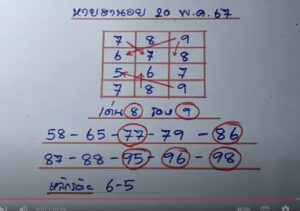 หวยฮานอย 20 พ.ค.67
7 8 9
6 7 8
5 6 7
7 8 9
เด่น 8 รอง 9
58-65-77-79-86
87-88-95-96-98
หลักร้อย 6-5